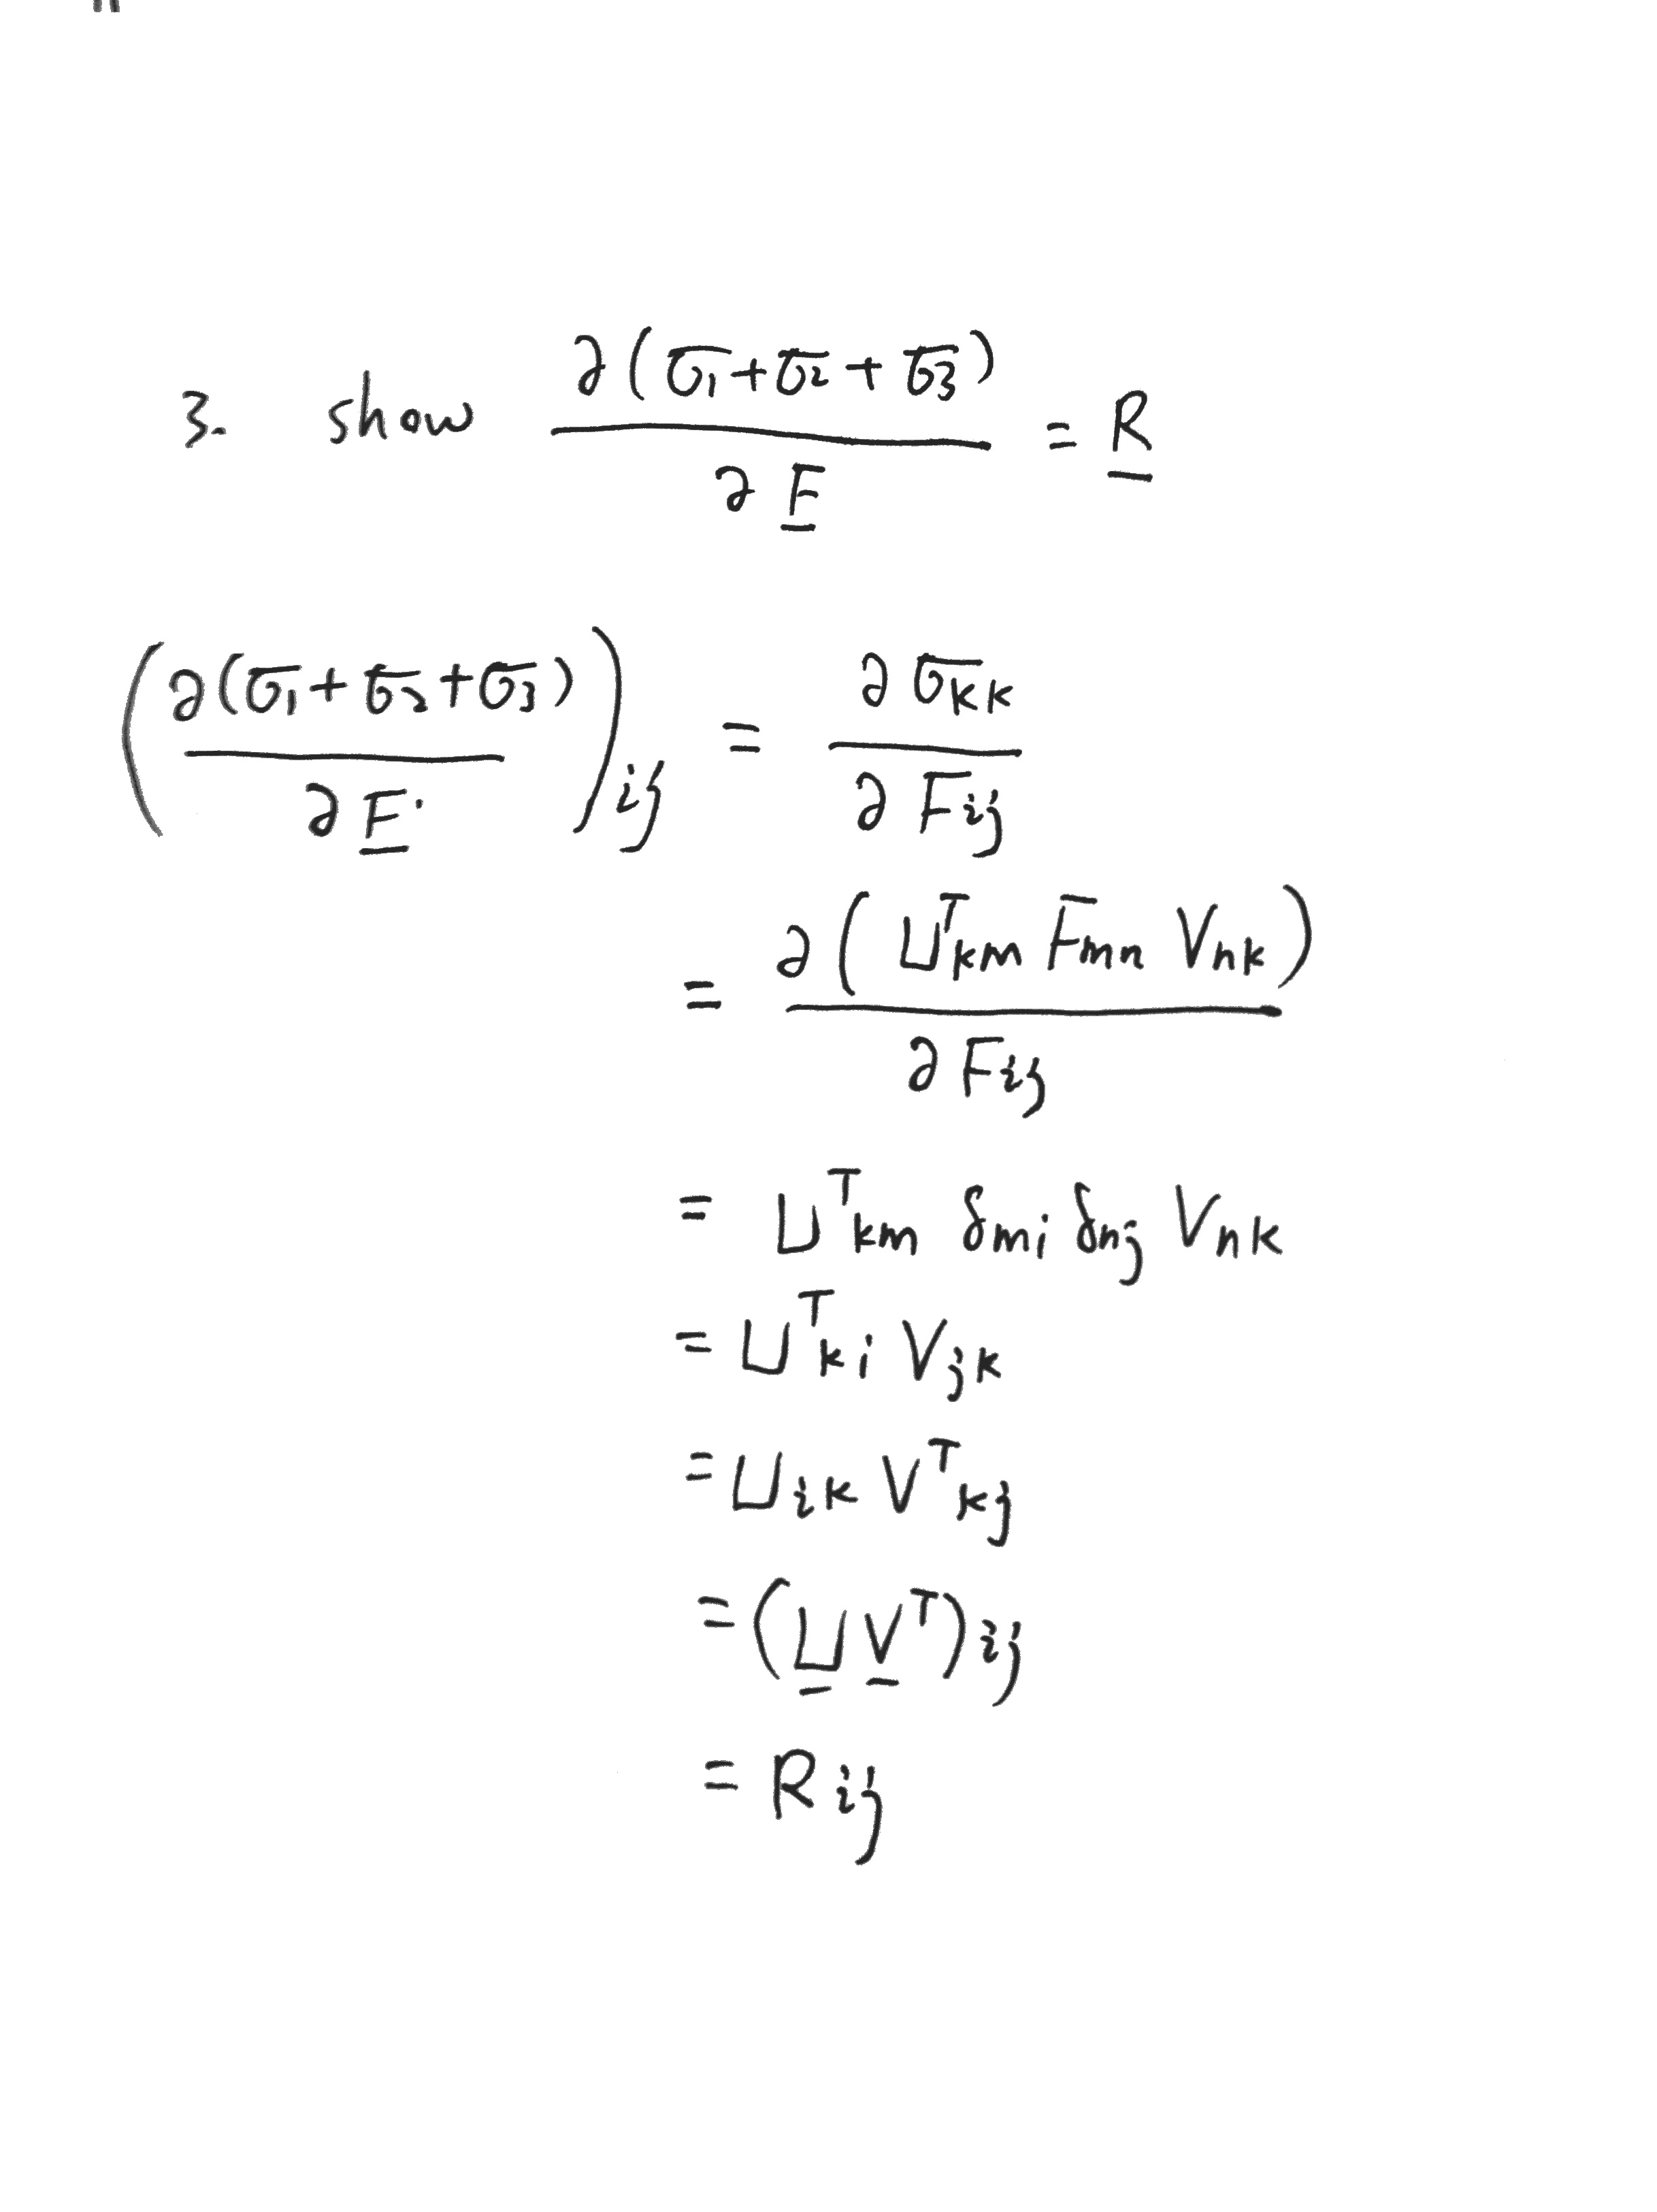 3. show ∂(σ1+σ2+σ3) / ∂F = R
(∂(σ1+σ2+σ3) / ∂F)ij = ∂σkk / ∂Fij
= ∂(U^T km Fmn Vnk) / ∂Fij
= U^T km δmi δnj Vnk
= U^T ki Vjk
= Uik V^T kj
= (U V^T)ij
= Rij